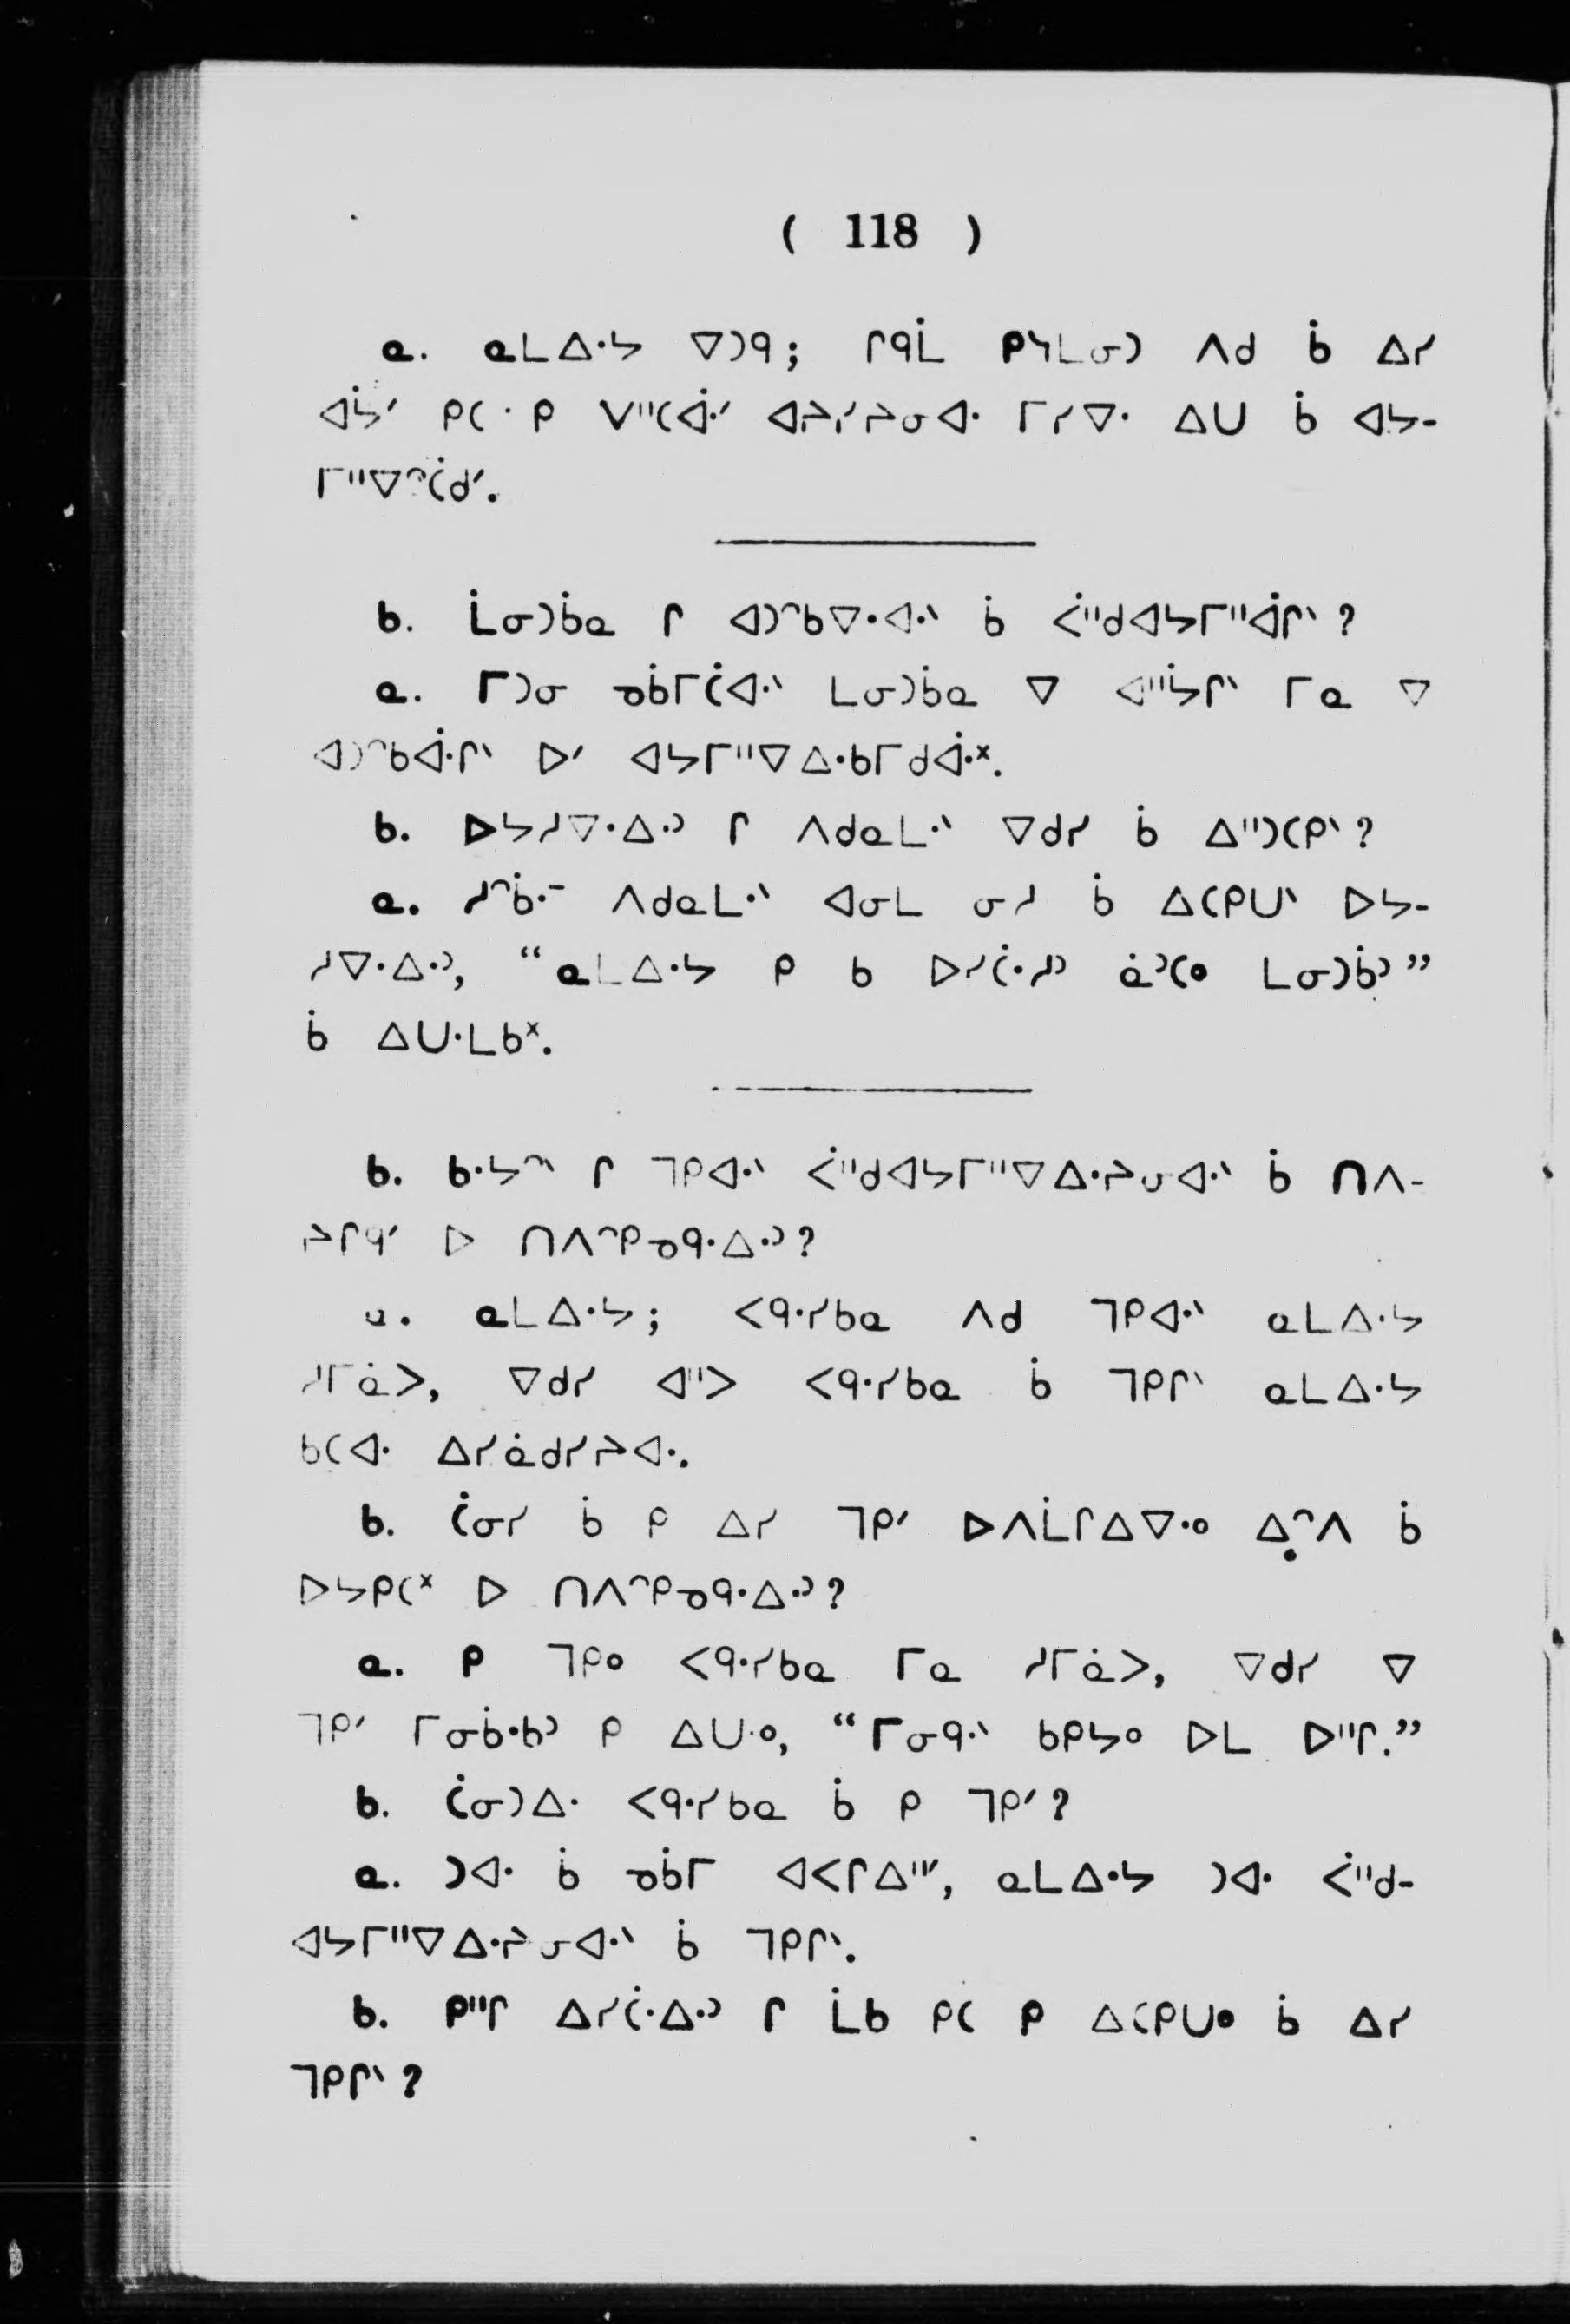 ( 118 )
ᓇ. ᓇᒪᐃᐧᔭ ᐁᑐᑫ; ᒋᑫᒫ ᑭᓴᒪᓂᑐ ᐱᑯ ᑳ ᐃᓯ
ᐊᔮᐟ ᑭᑕ ᑭ ᐯᐦᑕᐋᐧᐟ ᐊᔨᓯᔨᓂᐊᐧ ᒥᓯᐁᐧ ᐃᑌ ᑳ ᐊᔭ-
ᒥᐦᐁᐢᑖᑯᐟ.
ᑲ. ᒫᓂᑐᑳᓇ ᒋ ᐊᑐᐢᑲᐁᐧᐊᐧᐠ ᑳ ᐹᐦᑯᐊᔭᒥᐦᐋᒋᐠ?
ᓇ. ᒥᑐᓂ ᓄᑳᒥᑖᐊᐧᐠ ᒪᓂᑐᑳᓇ ᐁ ᐊᐦᔮᒋᐠ ᒥᓇ ᐁ
ᐊᑐᐢᑲᐋᐧᒋᐠ ᐅᐟ ᐊᔭᒥᐦᐁᐃᐧᑲᒥᑯᐋᐧᕽ.
ᑲ. ᐅᔭᓱᐁᐧᐃᐧᐣ ᒋ ᐱᑯᓇᒪᐧᐠ ᐁᑯᓯ ᑳ ᐃᐦᑐᑕᑭᐠ?
ᓇ. ᓱᐢᑳᐧᐨ ᐱᑯᓇᒪᐧᐠ ᐊᓂᒪ ᓂᓱ ᑳ ᐃᑕᑭᑌᐠ ᐅᔭ-
ᓱᐁᐧᐃᐧᐣ, “ᓇᒪᐃᐧᔭ ᑭ ᑲ ᐅᓯᑖᐧᓱᐣ ᓈᐣᑕᐤ ᒪᓂᑐᑳᐣ”
ᑳ ᐃᑌᐧᒪᑲᕽ.
ᑲ. ᑲᐧᔭᐢᐠ ᒋ ᒣᑭᐊᐧᐠ ᐹᐦᑯᐊᔭᒥᐦᐁᐃᐧᔨᓂᐊᐧᐠ ᑳ ᑎᐱ-
ᔨᒋᑫᐟ ᐅ ᑎᐱᐢᑭᓄᑫᐧᐃᐧᐣ?
ᓇ. ᓇᒪᐃᐧᔭ; ᐸᑫᐧᓯᑲᓇ ᐱᑯ ᒣᑭᐊᐧᐠ ᓇᒪᐃᐧᔭ
ᓱᒥᓈᐳ, ᐁᑯᓯ ᐊᐦᐳ ᐸᑫᐧᓯᑲᓇ ᑳ ᒣᑭᒋᐠ ᓇᒪᐃᐧᔭ
ᑲᑕᐊᐧ ᐃᓯᓈᑯᓯᔨᐊᐧ.
ᑲ. ᑖᓂᓯ ᑳ ᑭ ᐃᓯ ᒣᑭᐟ ᐅᐱᒫᒋᐃᐁᐧᐤ ᐃᐢᐱ ᑳ
ᐅᔭᑭᑕᕽ ᐅ ᑎᐱᐢᑭᓄᑫᐧᐃᐧᐣ?
ᓇ. ᑭ ᒣᑭᐤ ᐸᑫᐧᓯᑲᓇ ᒥᓇ ᓱᒥᓈᐳ, ᐁᑯᓯ ᐁ
ᒣᑭᐟ ᒥᓂᑳᐧᑲᐣ ᑭ ᐃᑌᐧᐤ, “ᒥᓂᑫᐧᐠ ᑲᑭᔭᐤ ᐅᒪ ᐅᐦᒋ.”
ᑲ. ᑖᓂᑐᐃᐧ ᐸᑫᐧᓯᑲᓇ ᑳ ᑭ ᒣᑭᐟ?
ᓇ. ᑐᐊᐧ ᑳ ᓄᑳᒥ ᐊᐸᒋᐃᐦᐟ, ᓇᒪᐃᐧᔭ ᑐᐊᐧ ᐹᐦᑯ-
ᐊᔭᒥᐦᐁᐃᐧᔨᓂᐊᐧᐠ ᑳ ᒣᑭᒋᐠ.
ᑲ. ᑭᐦᒋ ᐃᓯᑖᐧᐃᐧᐣ ᒋ ᒫᑲ ᑭᑕ ᑭ ᐃᑕᑭᑌᐤ ᑳ ᐃᓯ
ᒣᑭᒋᐠ?